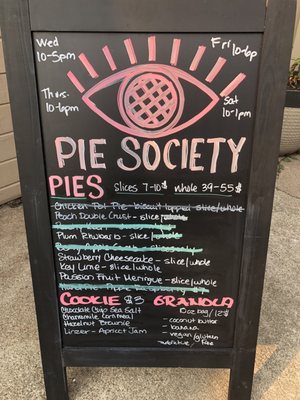 Wed
10-5pm
Thurs.
10-6pm
Fri 10-6p
Sat
10-1pm
PIE SOCIETY
PIES slices 7-10$ whole 39-55$
Chicken Pot Pie biscuit topped slice/whole
Peach Double Crust - slice/whole
Plum Rhubarb - slice/whole
slices only
Strawberry Cheesecake - slice/whole
Key Lime - slice/whole
Passion Fruit Meringue - slice/whole
COOKIE $3 GRANOLA
Chocolate Chip Sea Salt
Chamomile Cornmeal
Hazelnut Brownie
Linzer - Apricot Jam
10oz bag/12$
- coconut butter
- banana
- vegan/gluten
free